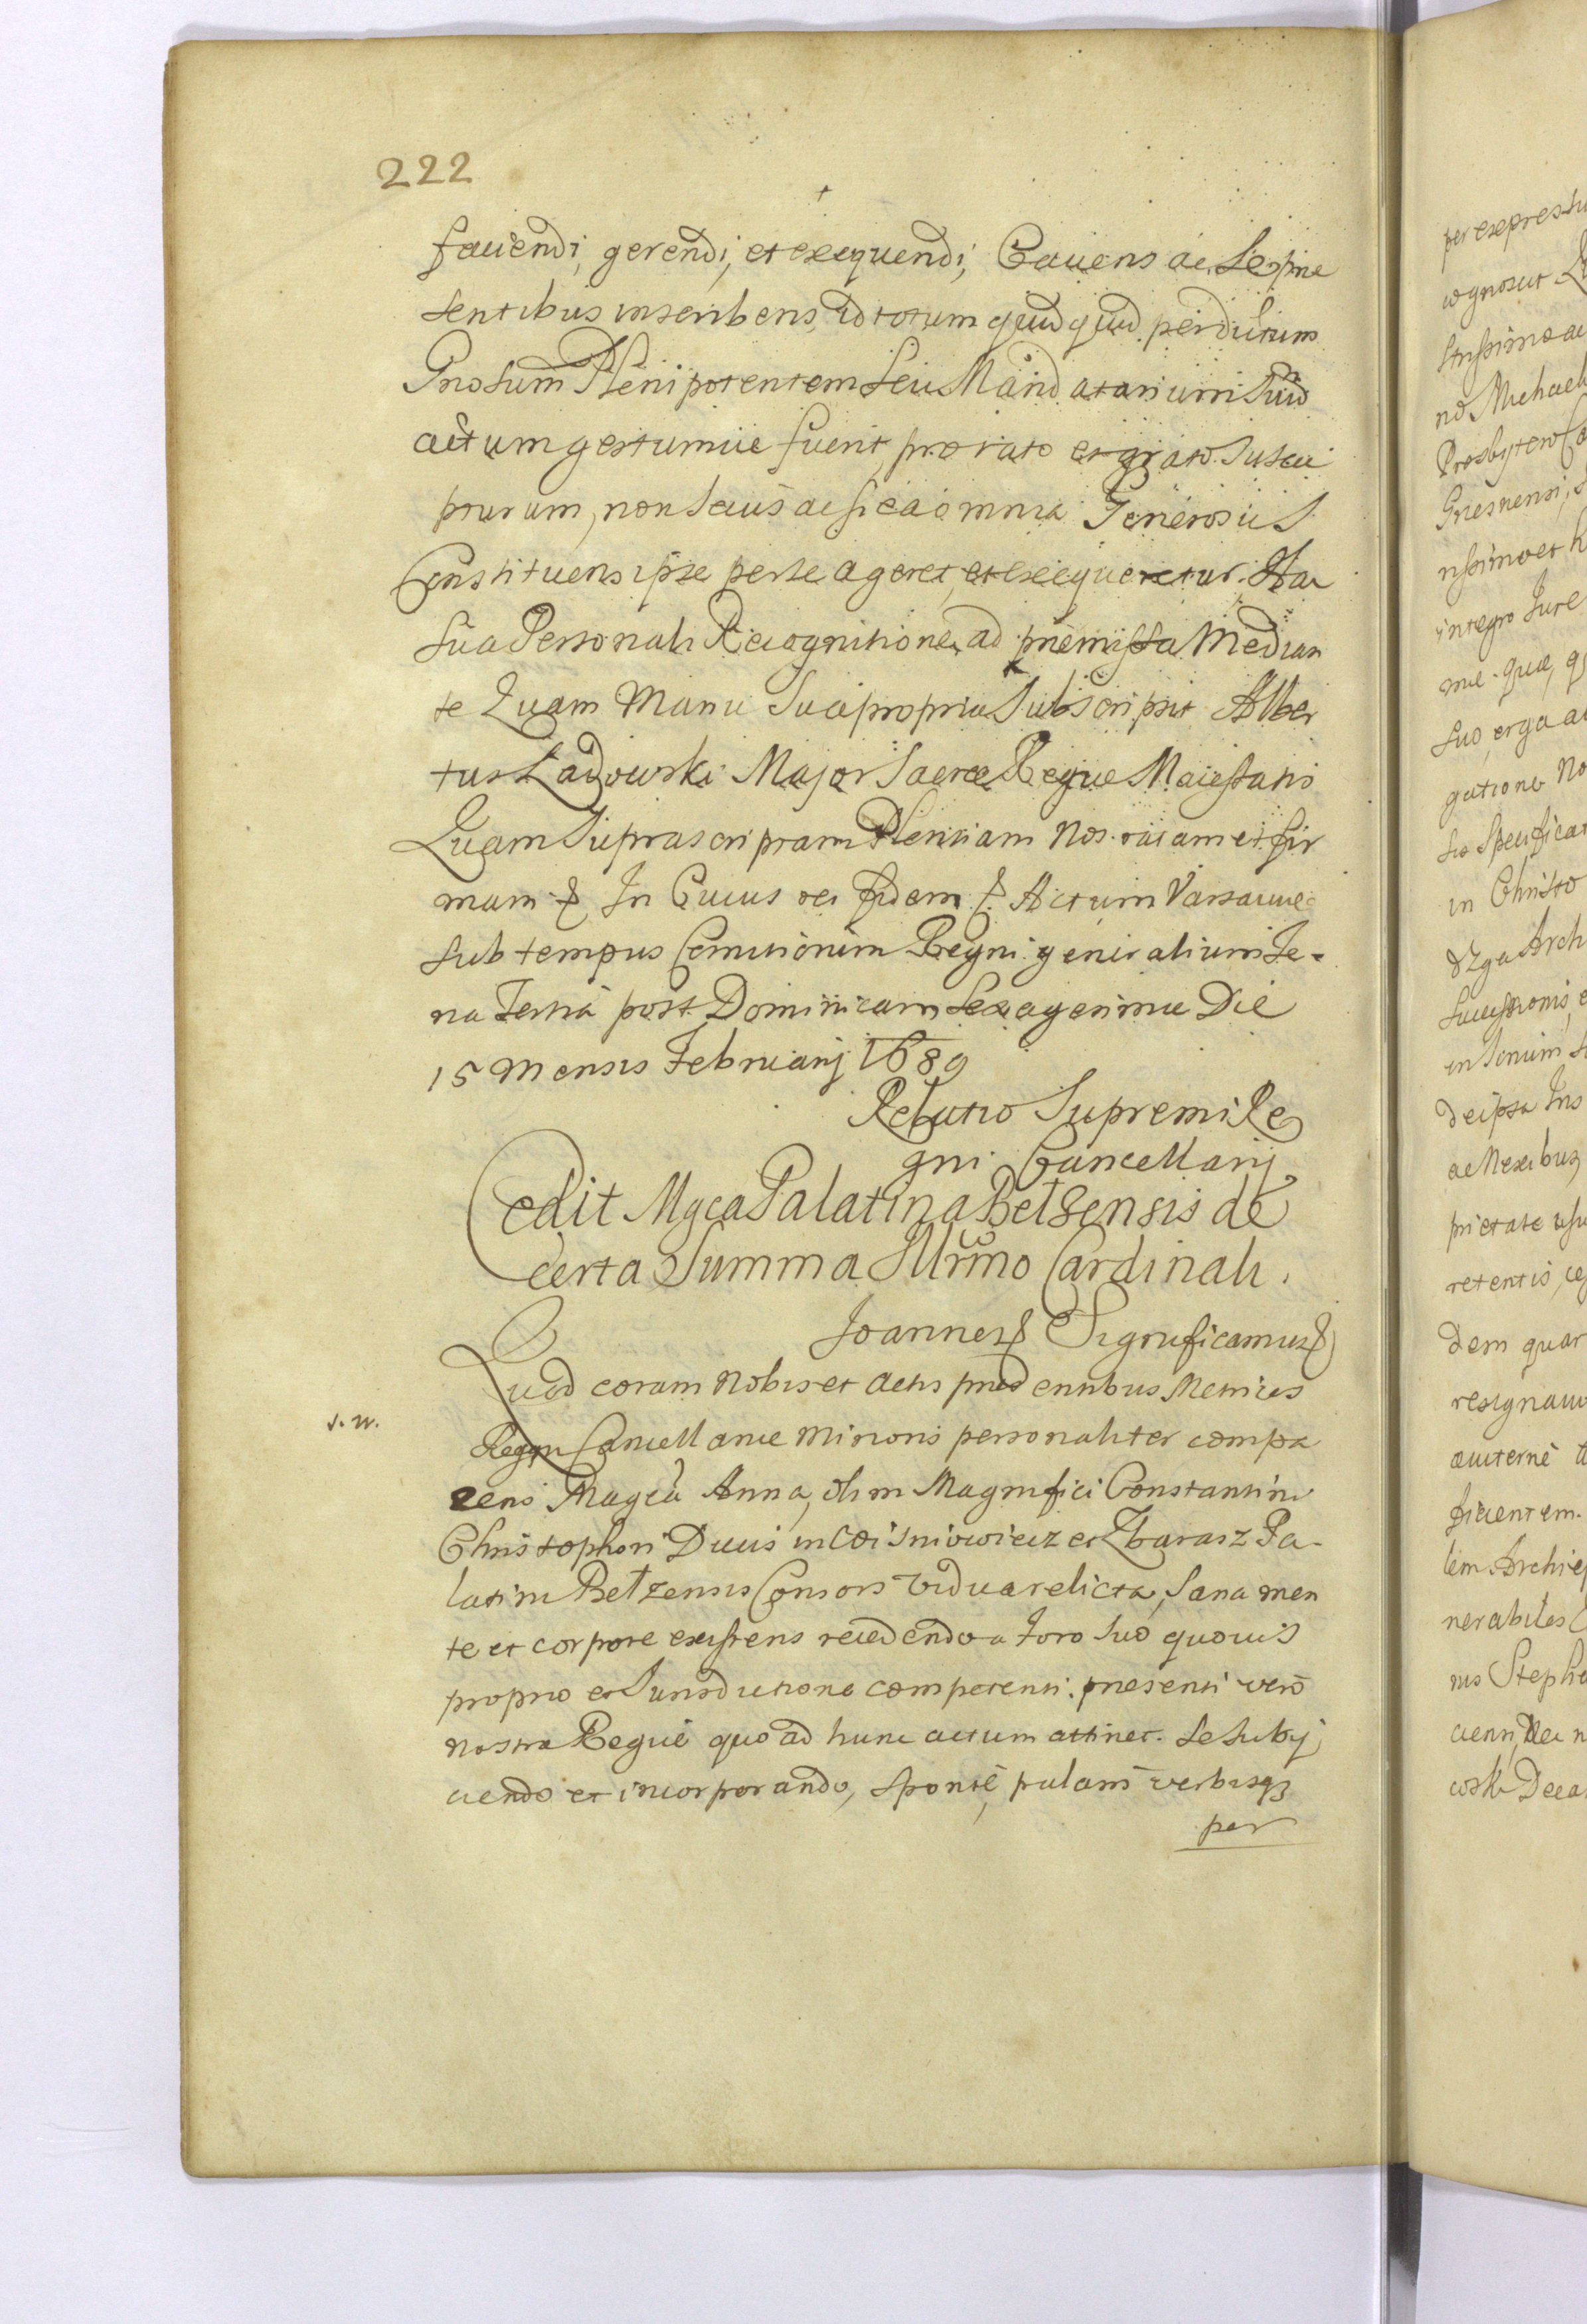 222
faciendi, gerendi, et exequendi, Cavens ac se præ
sentibus inscribens, id totum quid quid per dictum
Gnosum Plenipotentem seu Mandatarium suum
actum gestumve fuerit, pro rato et grato susce
pturum, non secus ac si ea omnia Generosus
Constituens ipse per se ageret, et exequeretur. Hac
sua Personali Recognitione ad præmissa Median
te Quam Manu sua propria subscripsit Alber
tus Ladowski Major Sacræ Regiæ Maiestatis
Quam suprascriptam Plentiam Nos ratam et fir
mam & In Cuius rei fidem & Actum Varsaviæ
sub tempus Comitiorum Regni generalium Fe-
ria Tertia post Dominicam Sexagesimæ Die
15 Mensis Februarij 1689
Relatio Supremi Re
gni Cancellarij
Cedit Mgca Palatina Belzensis de
certa Summa Illrmo Cardinali.
Joannes & Significamus &
Quod coram Nobis et Actis præsentibus Metrices
Regni Cancellariæ Minoris personaliter compa
rens Magca Anna, olim Magnifici Constantini
Christophori Ducis in Wisniowiecz et Zbarasz Pa-
latini Belzensis Consors vidua relicta, sana men
te et corpore existens recedendo a foro suo quovis
proprio et Iurisdictione competenti. præsenti vero
nostræ Regiæ quo ad hunc actum attinet. se subij
ciendo et incorporando, sponte, palam verbisqz
per